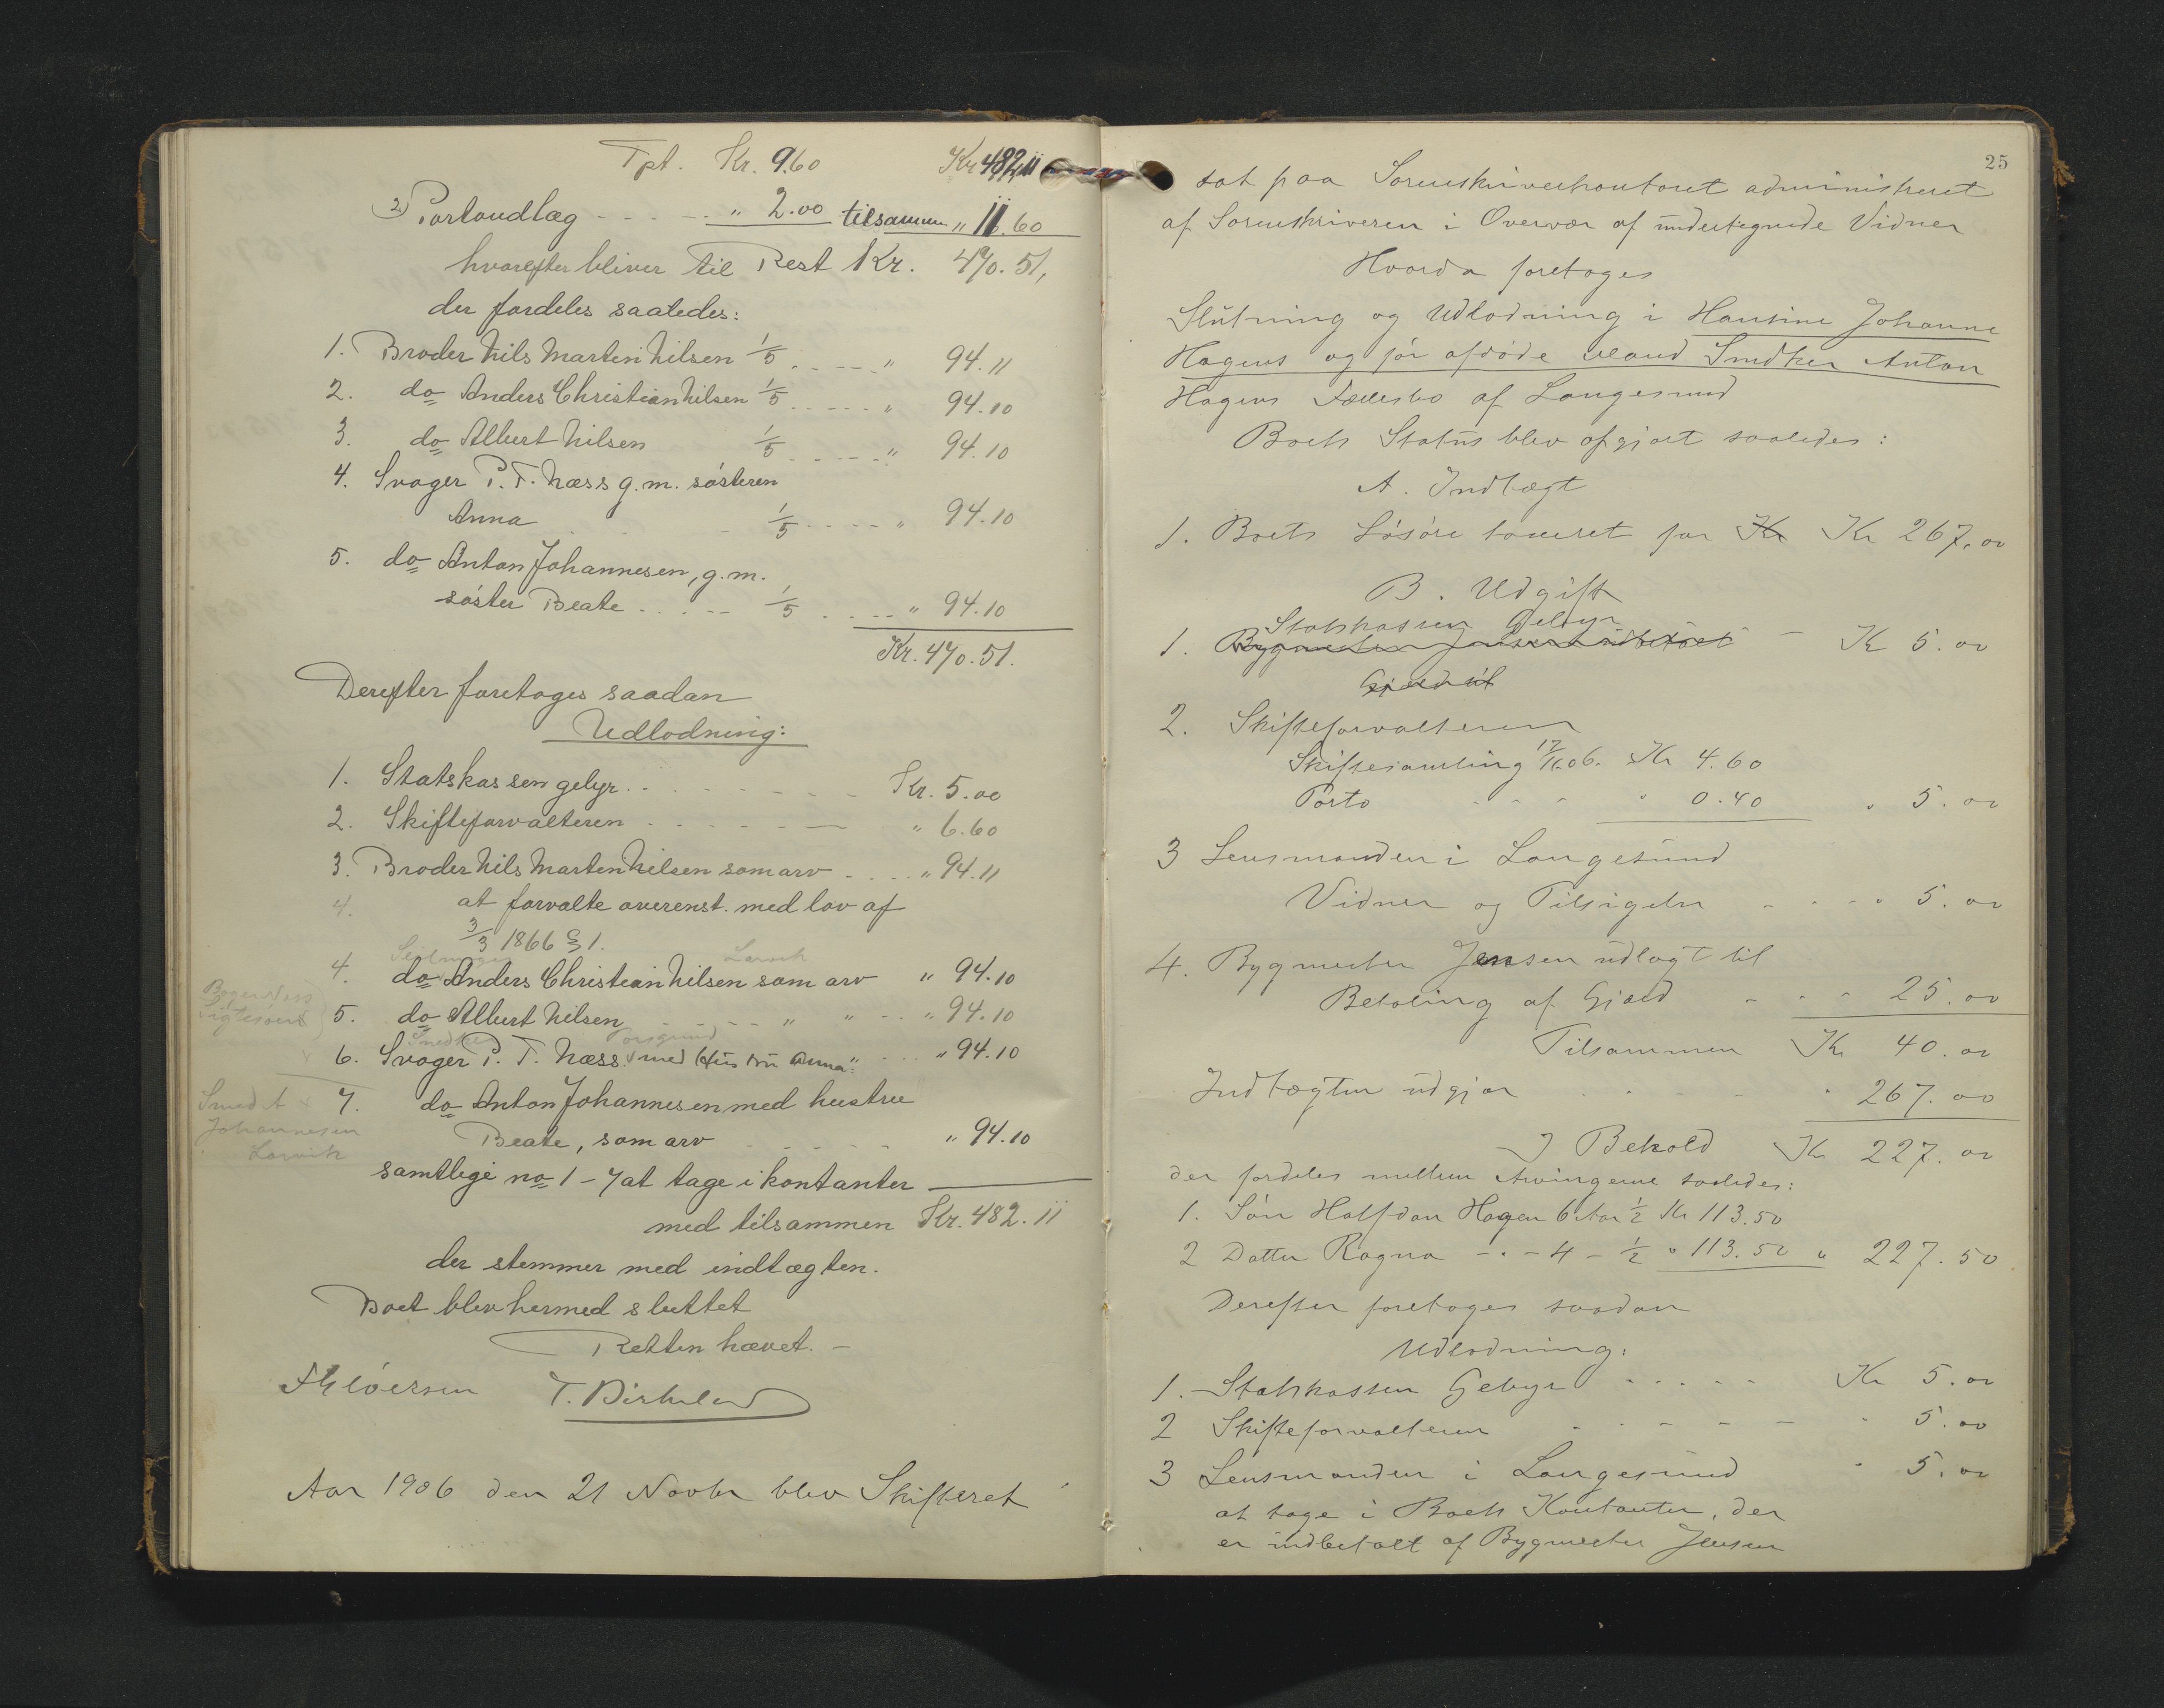 Tpt. Kr. 9.60 Kr 482,11
2) Portoudlæg - - - - - " 2.00 tilsammen " 11.60
hvorefter bliver til Rest Kr. 470.51,
der fordeles saaledes:
1. Broder Nils Martin Nilsen 1/5 - - - - " 94.11
2. do Anders Christian Nilsen 1/5 - - - - " 94.10
3. do Albert Nilsen 1/5 - - - - " 94.10
4. Svoger P. T. Næss g.m. søsteren
Anna 1/5 - - - - " 94.10
5. do Anton Johannesen, g.m.
søster Beate - - - - 1/5 - - - - " 94.10
Kr. 470.51.
Derefter foretoges saadan
Udlodning:
1. Statskassen gebyr - - - - - - - Kr. 5.00
2. Skifteforvalteren - - - - - - " 6.60
3. Broder Nils Marten Nilsen som arv - - - - " 94.11
4. at forvalte overenst. med lov af
3/3 1866 § 1.
Larvik
4. do Anders Christian Nilsen som arv " 94.10
5. do Albert Nilsen - - - - " " - - " 94.10
Snedker Porsgrund
6. Svoger P. T. Næss med Hustru Anna " - - - " 94.10
Smed A
Johannesen
Larvik
7. do Anton Johannesen med hustru
Beate, som arv - - - - - " 94.10
samtlige no 1 - 7 at tage i kontanter
med tilsammen Kr. 482.11
der stemmer med indtægten.
Boet blev hermed sluttet
Retten hævet. -
T. Birkeland
Aar 1906 den 21 Novbr blev Skifteret
25
sat paa Sorenskriverkontoret administreret
af Sorenskriveren i Overvær af undertegnede Vidner
Hvorda foretoges
Slutning og Udlodning i Hansine Johanne
Hagens og før afdøde Mand Snedker Anton
Hagens Fællesbo af Langesund
Boets Status blev opgjort saaledes:
A. Indtægt
1. Boets Løsøre taxeret for Kr Kr 267.00
B. Udgift
Statskassen Gebyr
1. Bygmester Jensen indbetalt - Kr 5.00
Gjæld út
2. Skifteforvalteren
Skiftesamling 17/11.06. Kr 4.60
Porto - - - - " 0.40 " 5.00
3 Lensmanden i Langesund
Vidner og Tilsigelse - - - " 5.00
4. Bygmester Jensen udlagt til
Betaling af Gjæld - - - 25.00
Tilsammen Kr 40.00
Indtægten udgjør - - - - " 267.00
I Behold Kr 227.00
der fordeles mellem Arvingerne saaledes:
1. Søn Halfdan Hagen 6 Aar 1/2 Kr 113.50
2 Datter Ragna - " - 4 - 1/2 " 113.50 " 227.50
Derefter foretoges saadan
Udlodning:
1. Statskassen Gebyr - - - - - Kr 5.00
2 Skifteforvalteren - - - - - " 5.00
3 Lensmanden i Langesund " 5.00
at tage i Boets Kontanter, der
er indbetalt af Bygmester Jensen